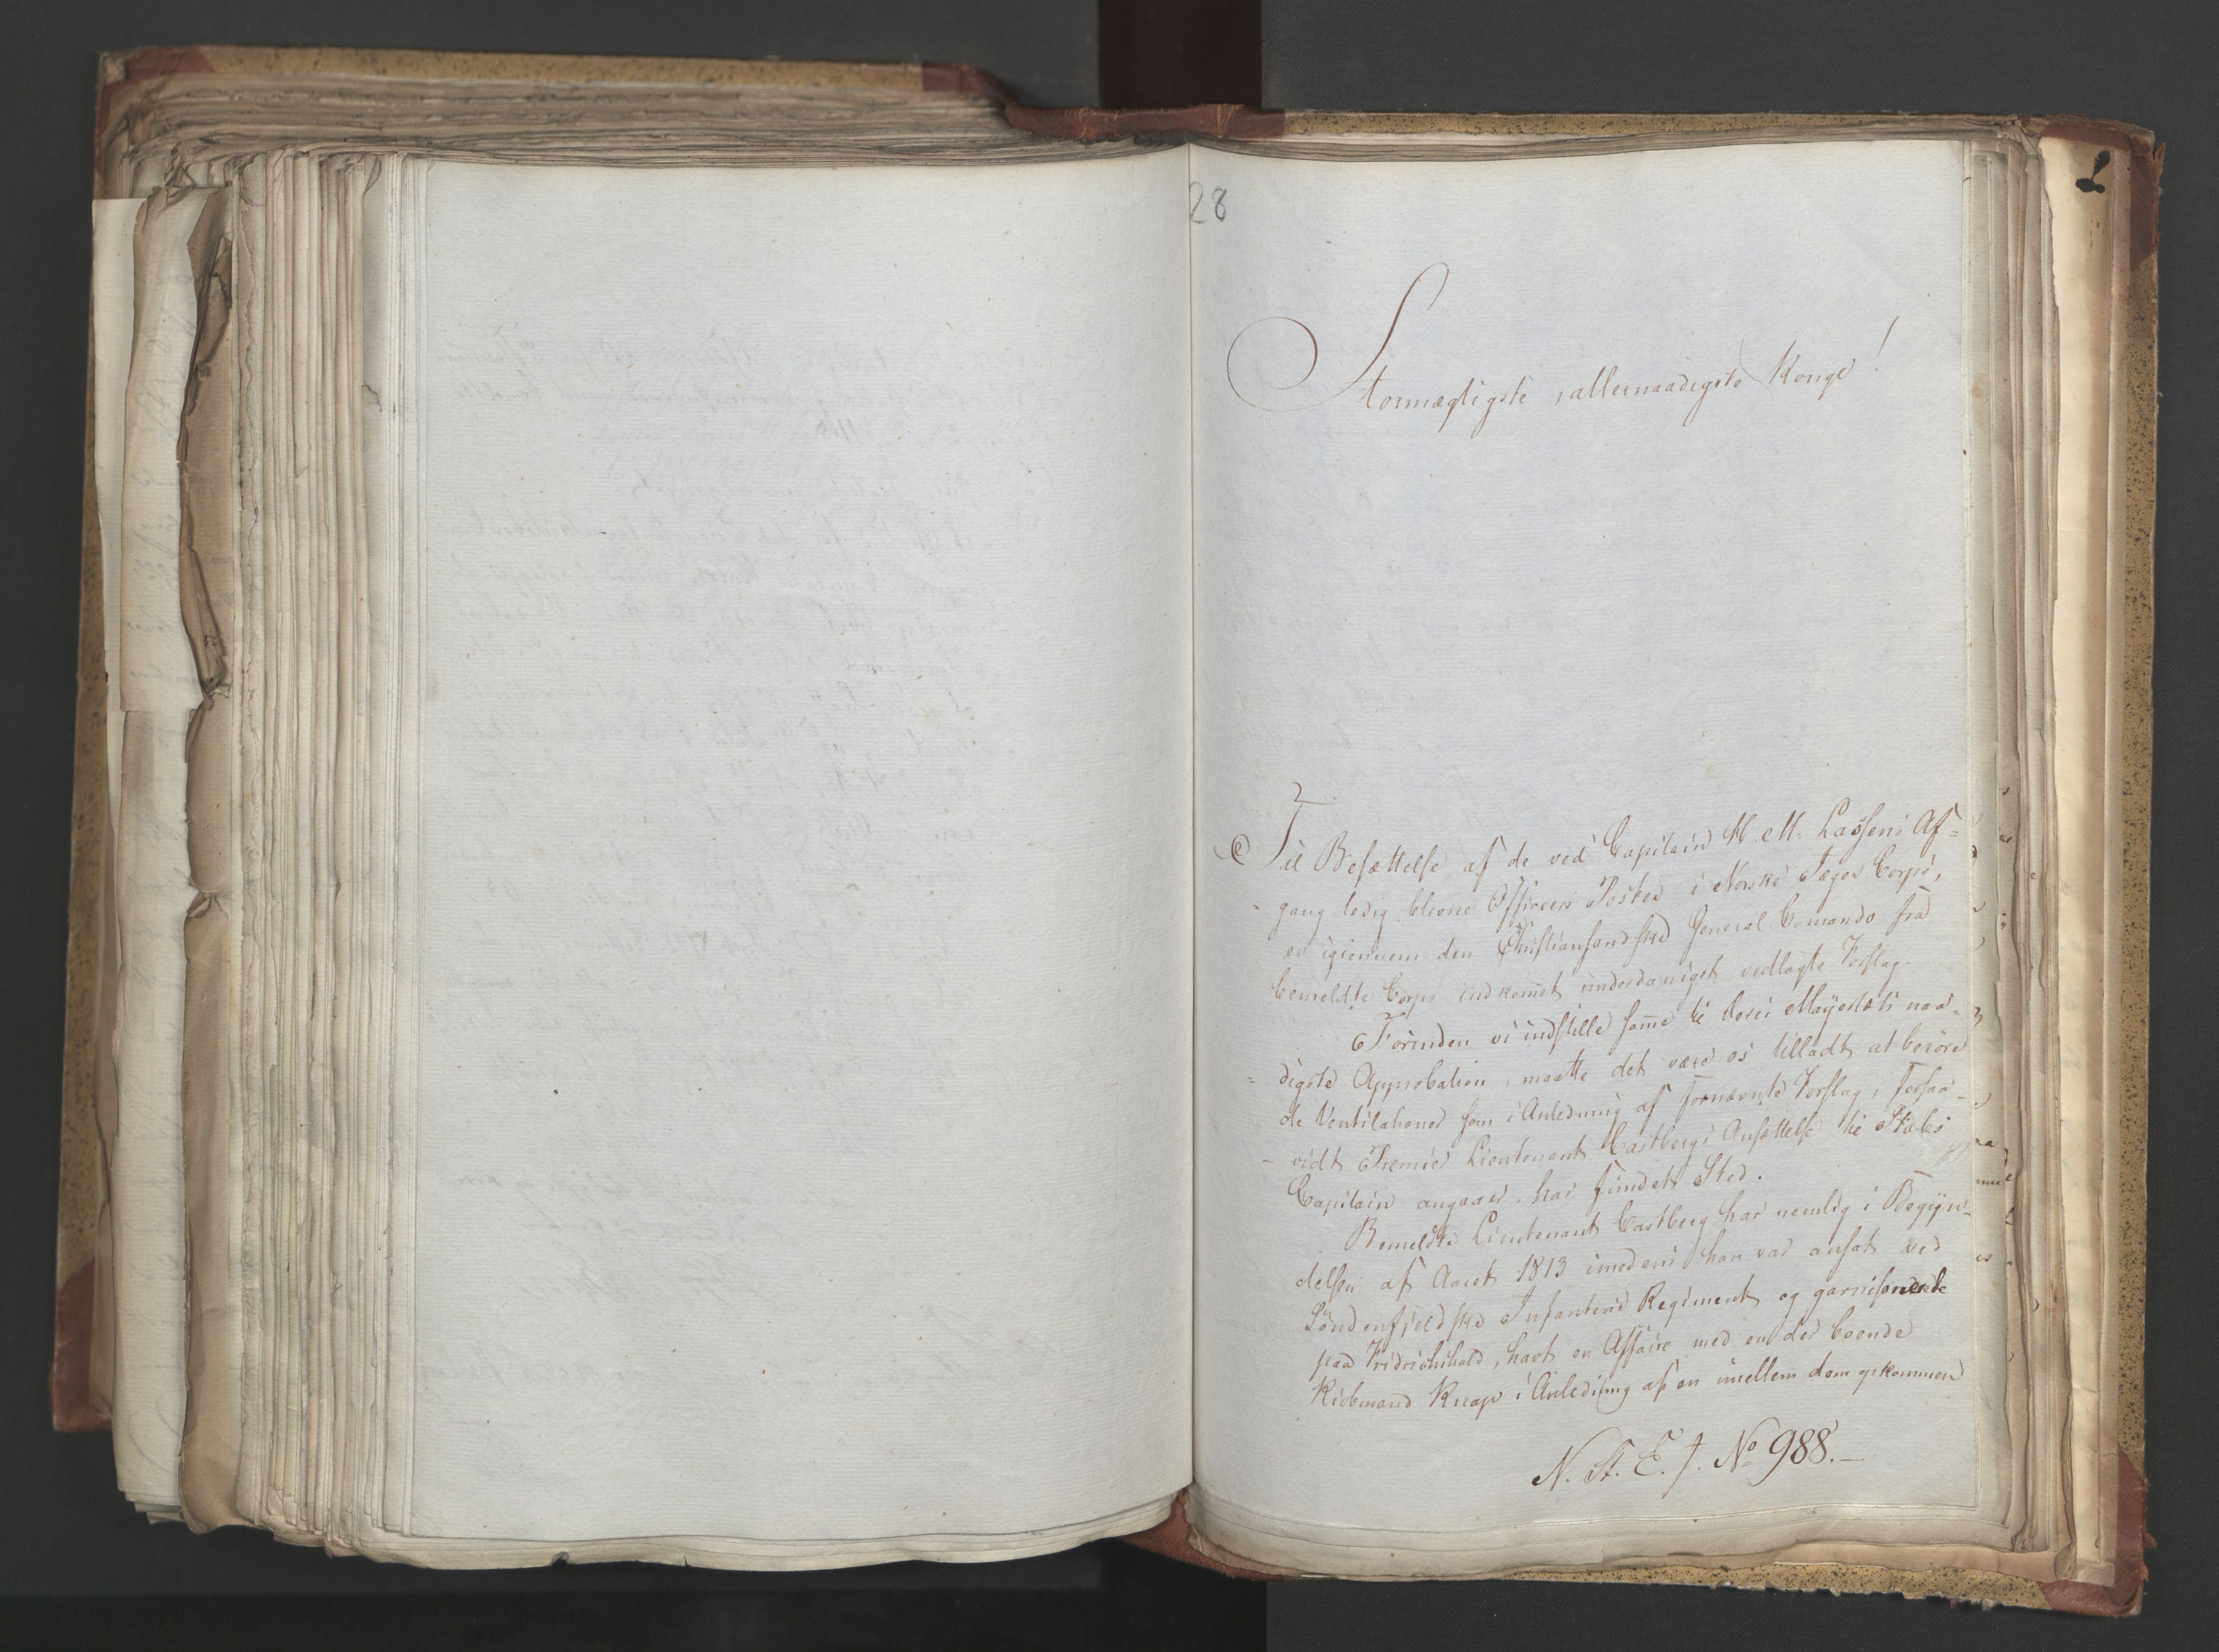 28
Stormægtigste, allernaadigste Konge!
Til Besættelse af de ved Capitain M. M. Lassens Af=
gang ledig blevne Officeers Poster i Norske Jæger Corps,
er igiennem den Christiansandske General Comando fra
bemeldte Corps indkomet underdanigst vedlagte Forslag.
Forinden vi indstille same til Deres Mayestæts naa=
digste Approbation, maatte det være os tilladt at berøre
de Ventilationer som i Anledning af fornævnte Forslag, forsaa-
vidt Premier Lieutenant Castbergs Ansættelse til Stabs
Capitain angaaer, har fundet Sted.
Bemeldte Lieutenant Castberg har nemlig i Begÿn-
delsen af Aaret 1813 imedens han var ansat ved
Søndenfjeldske Infanterie Regiment og garnisonerede
paa Fridrichshald, havt en Affaire med en der boende
Kiøbmand Knap i Anledning af en imellem dem opkommen
N. St. E. J. No 988.-